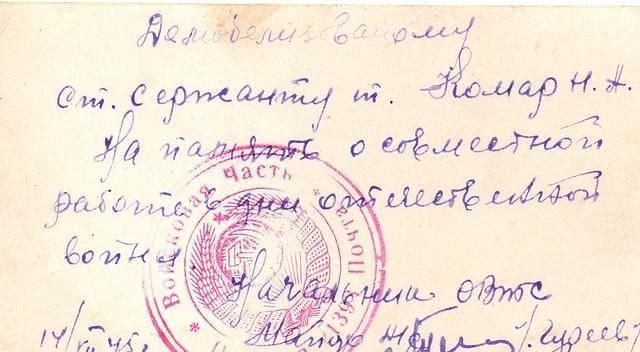 Демобелизованому
ст. сержанту т. Комар Н. А.
На память о совместной
работе в дни отечественной
войны.
Начальник ОВТС
Майор
14/VII 45г.
Войсковая часть
Почта